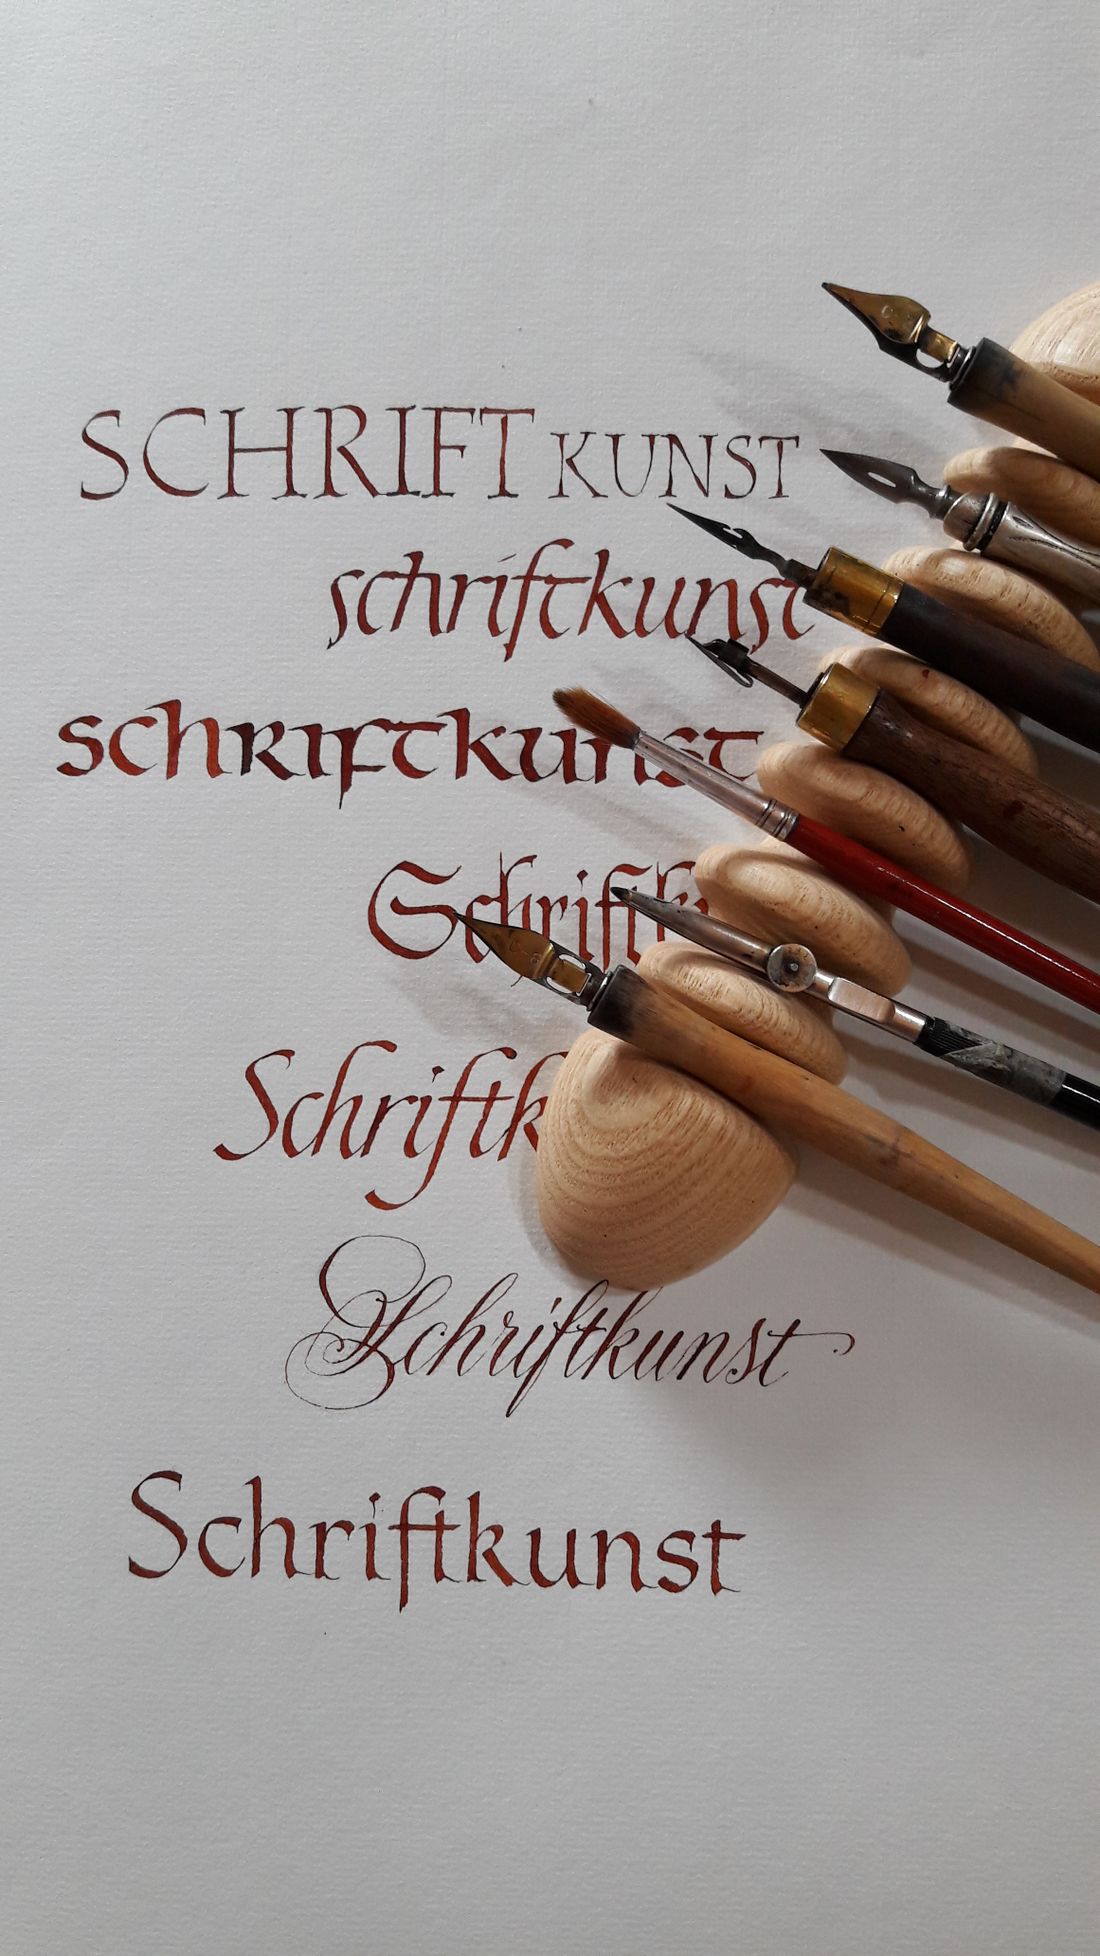 SCHRIFT KUNST
schriftkunst
schriftkunst
Schriftk
Schriftk
Schriftkunst
Schriftkunst